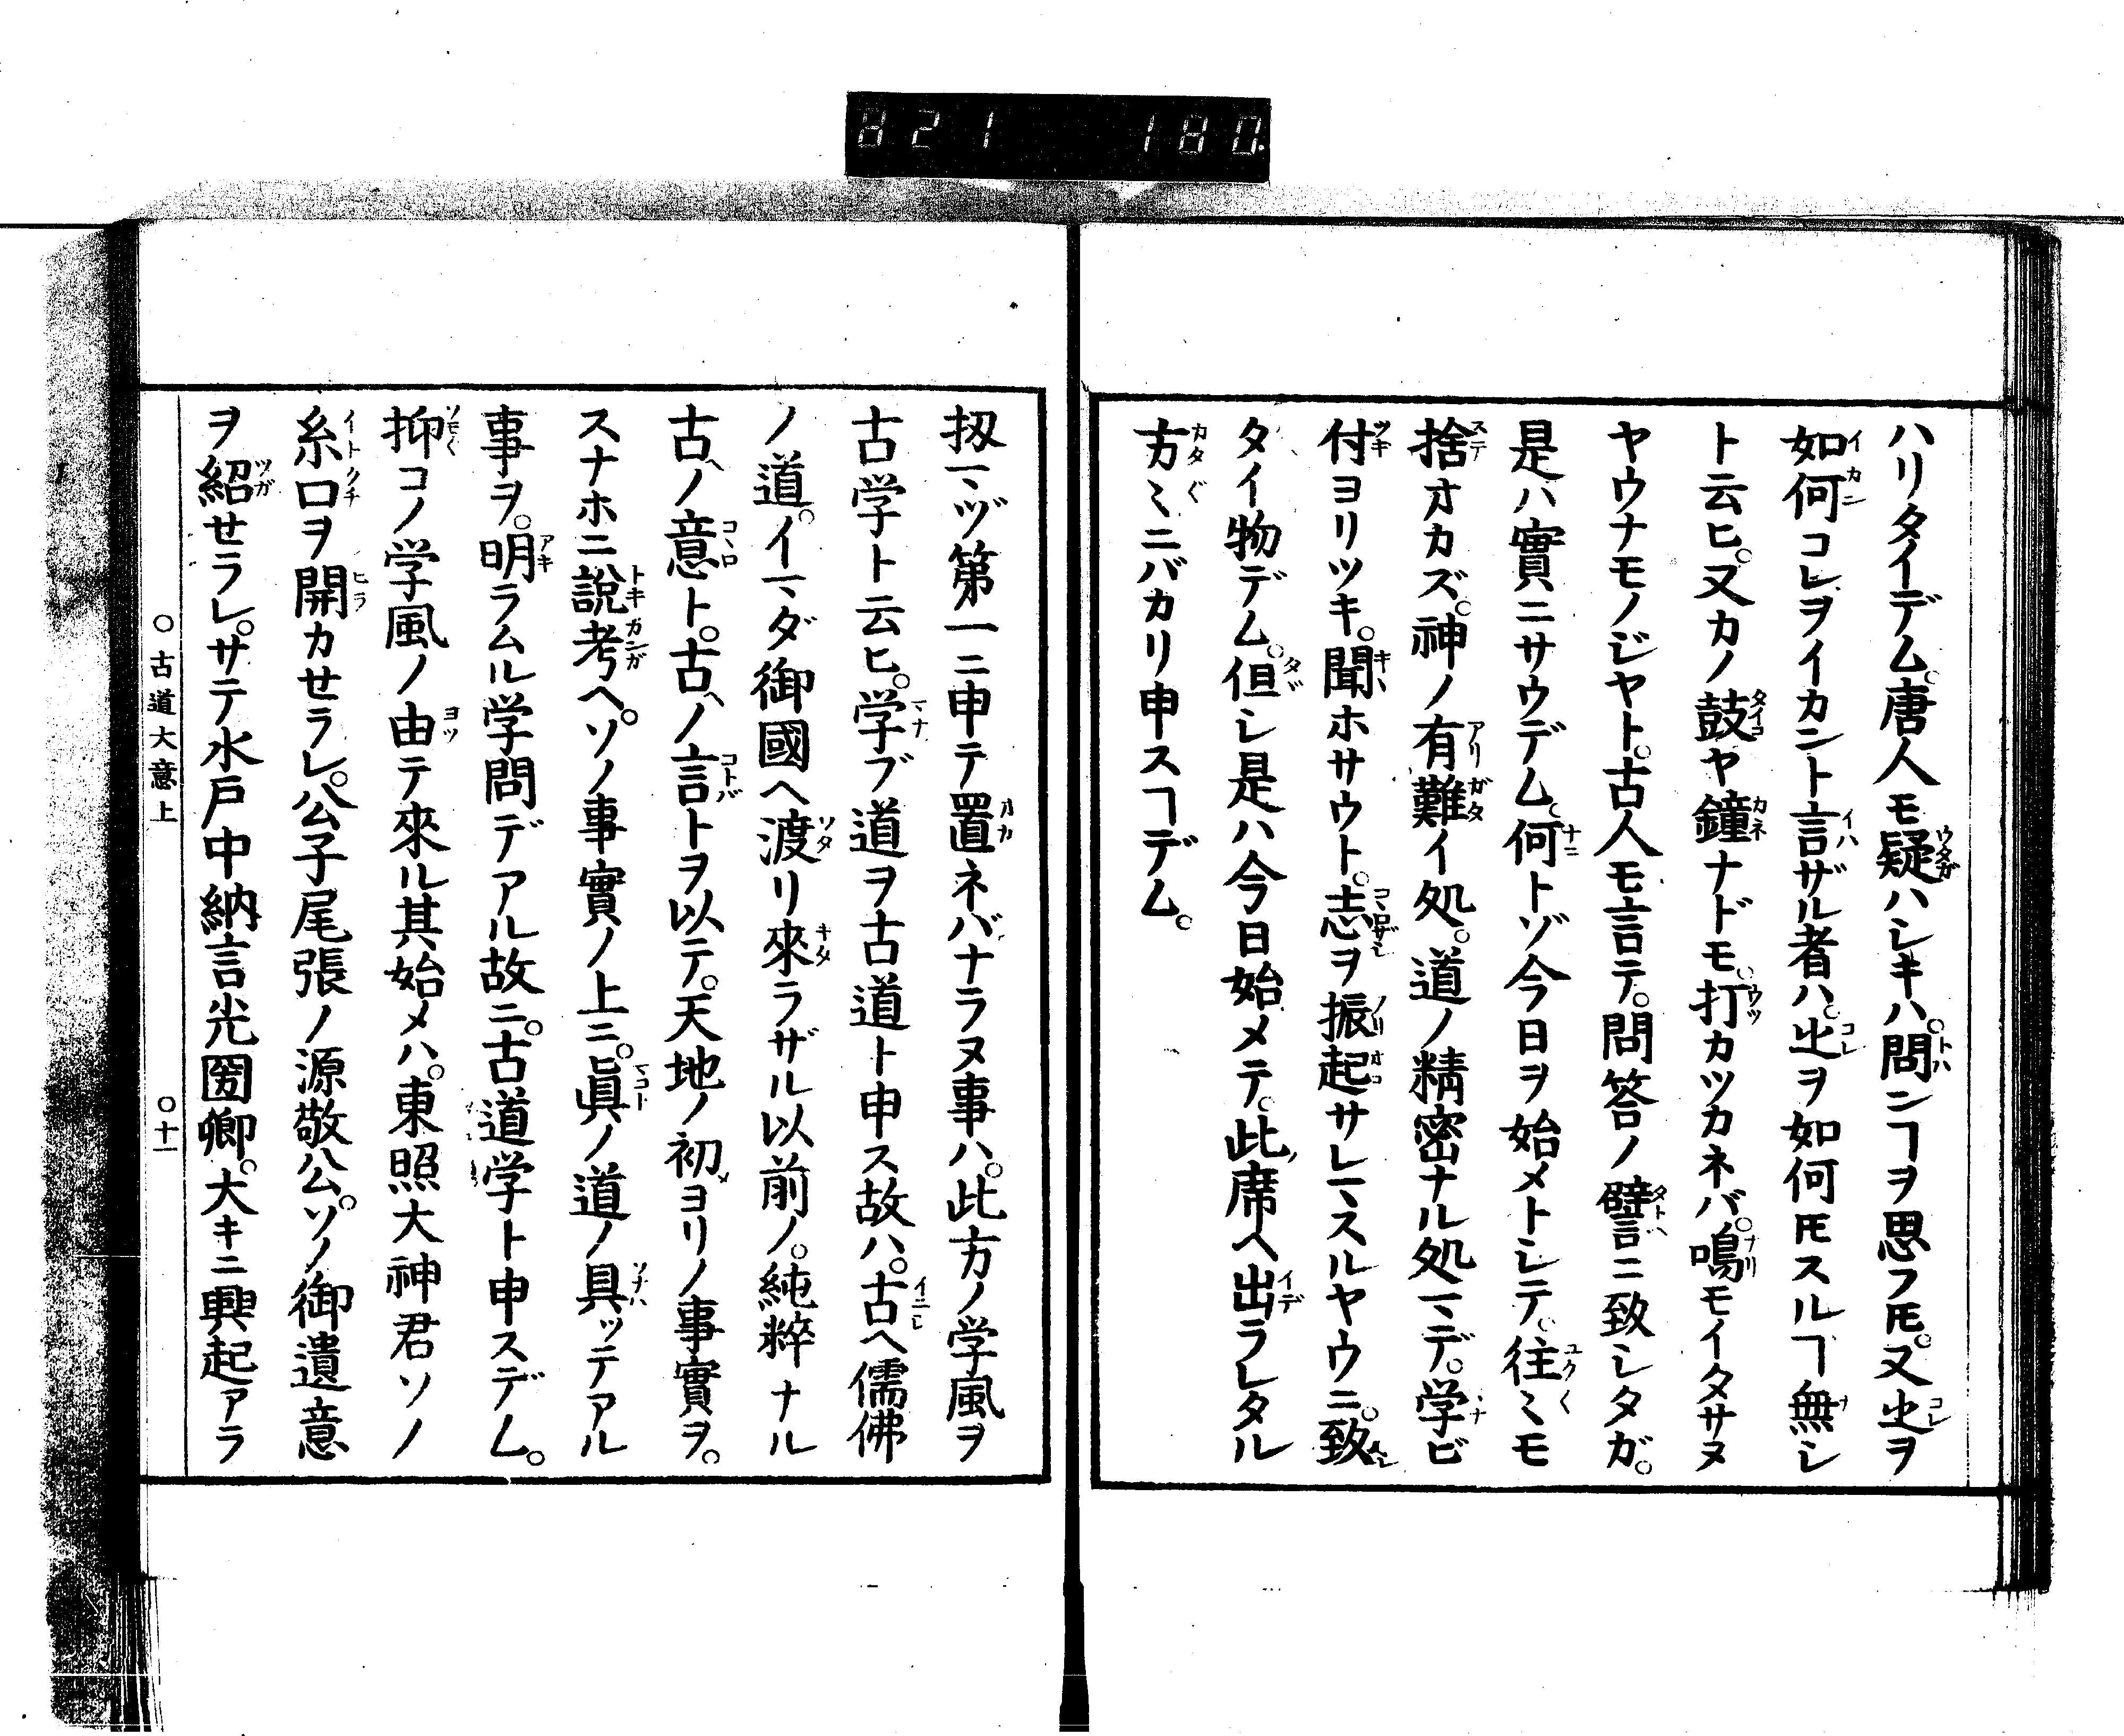 821 180.
ハリタイデム。唐人モ疑ハシキハ。問ンヿヲ思フ𪜈。又㞢ヲ
如何コレヲイカント言ザル者ハ。㞢ヲ如何𪜈スルヿ無シ
ト云ヒ。又カノ鼓ヤ鐘ナドモ。打カツカネバ。鳴モイタサヌ
ヤウナモノジヤト。古人モ言テ。問答ノ譬言ニ致シタガ。
是ハ實ニサウデム。何トゾ今日ヲ始メトシテ。往〻モ
捨オカズ。神ノ有難イ処。道ノ精密ナル処マデ。学ビ
付ヨリツキ。聞ホサウト。志ヲ振起サレマスルヤウニ。致シ
タイ物デム。但シ是ハ今日始メテ。此席ヘ出ラレタル
方〻ニバカリ申スヿデム。
扨マヅ第一ニ申テ置ネバナラヌ事ハ。此方ノ学風ヲ
古学ト云ヒ。学ブ道ヲ古道ト申ス故ハ。古ヘ儒佛
ノ道。イマダ御國ヘ渡リ來ラザル以前ノ。純粹ナル
古ヘノ意ト。古ヘノ言トヲ以テ。天地ノ初メヨリノ事實ヲ。
スナホニ說考ヘ。ソノ事實ノ上ニ。眞ノ道ノ具ッテアル
事ヲ。明ラムル学問デアル故ニ。古道学ト申スデム。
抑コノ学風ノ由テ來ル其始メハ。東照大神君ソノ
糸口ヲ開カセラレ。公子尾張ノ源敬公。ソノ御遺意
ヲ紹セラレ。サテ水戸中納言光圀卿。大キニ興起アラ
○古道大意上 ○十一